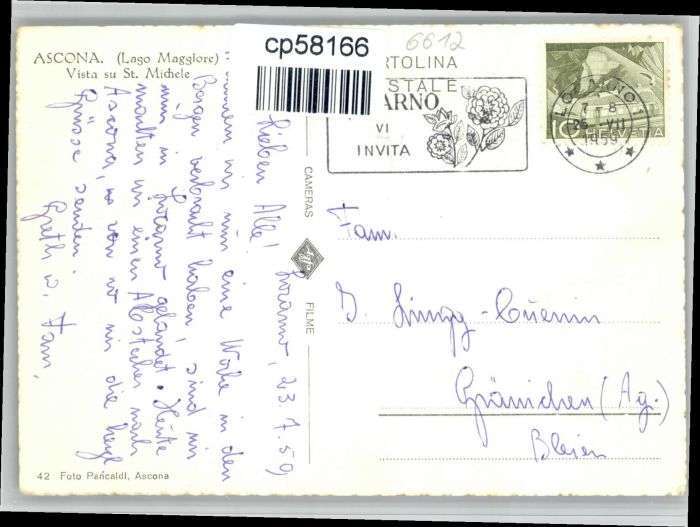 ASCONA. (Lago Maggiore)
Vista su St. Michele
cp58166
6612
CARTOLINA
POSTALE
LOCARNO
VI
INVITA
LOCARNO 1
26. VII
1959
HELVETIA
10
CAMERAS
Agfa
FILME
Locarno, 23.7.59
Lieben Alle!
Nachdem wir nun eine Woche in den
Bergen verbracht haben, sind wir
nun in Locarno gelandet. Heute
machten wir einen Abstecher nach
Ascona, wo von wir die herzl.
Grüsse senden.
Greth u. Fam.
Fam.
J. Lingg-Cuenin
Gränichen (Ag.)
Bleien
42 Foto Paricaldi, Ascona